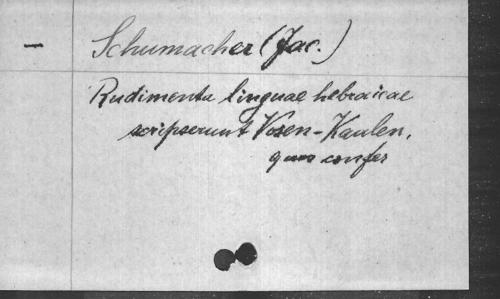 — Schumacher (Jac.)
Rudimenta linguae hebraicae
scripserunt Vosen-Kaulen,
quos confer